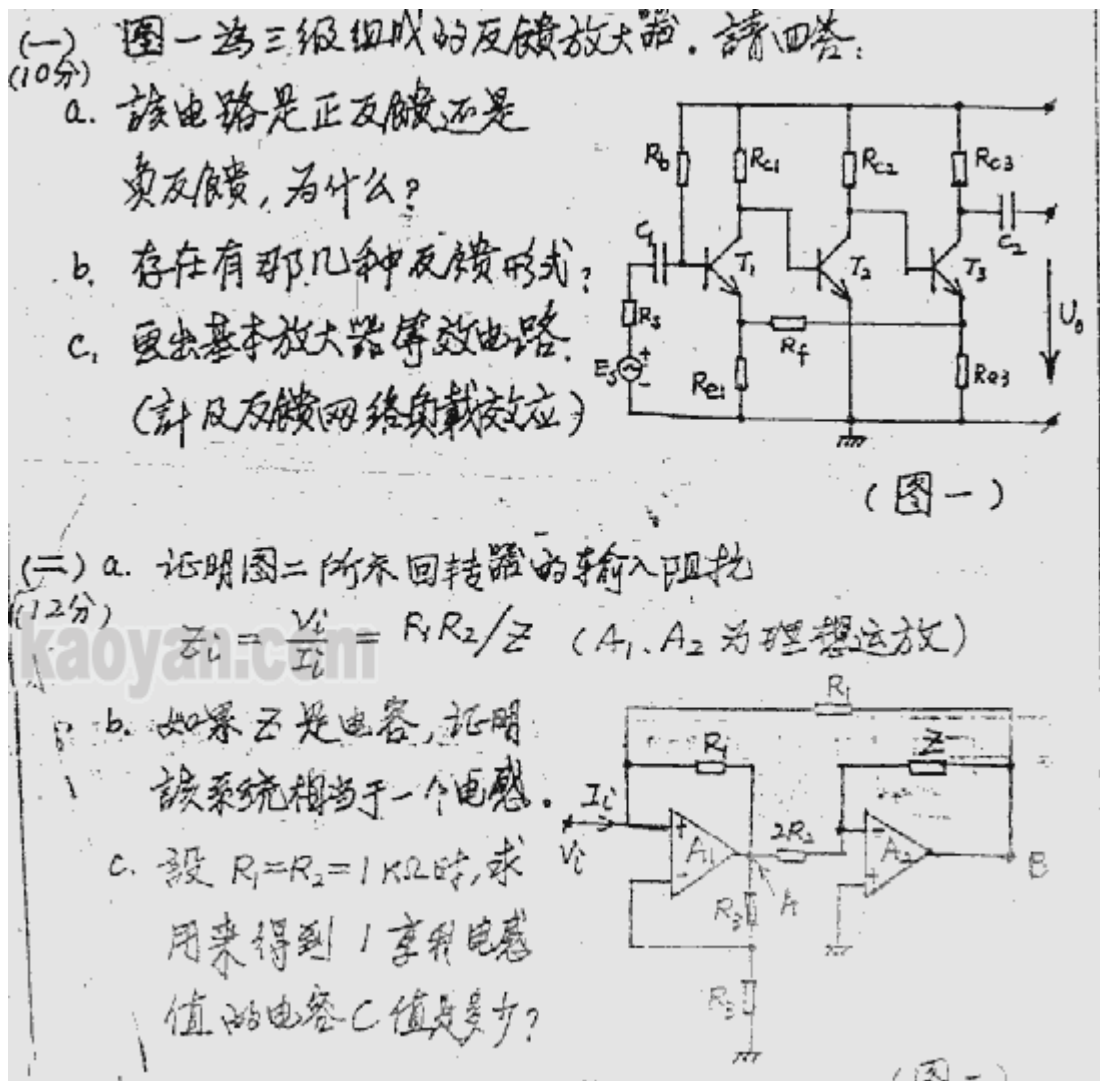 (一) 图一為三级组成的反馈放大器. 請回答:
(10分)
a. 該电路是正反馈还是
负反馈, 为什么?
b. 存在有那几种反馈形式?
c. 画出基本放大器等效电路.
(計及反馈网络负載效应)
Rb
Rc1
Rc2
Rc3
C1
T1
T2
T3
C2
Rs
Es
+
-
Re1
Rf
Re3
U0
(图一)
(二) a. 证明图二所示回转器的输入阻抗
(12分)
Zi = Vi/Ii = R1R2/Z (A1、A2 为理想运放)
kaoyan.com
b. 如果 Z 是电容, 证明
該系统相当于一个电感.
c. 設 R1=R2=1KΩ时, 求
用来得到 1 享利电感
值的电容 C 值是多少?
R1
R1
Z
Ii
Vi
+
A1
-
2R2
-
A2
+
A
B
R3
R3